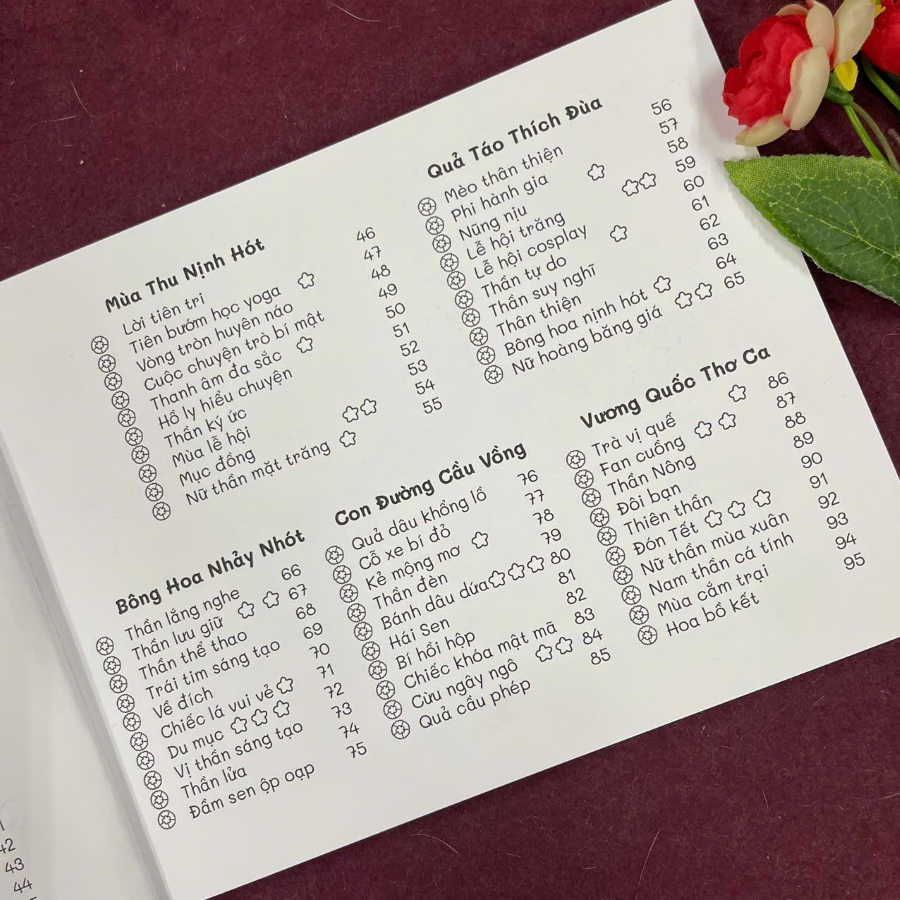 Mùa Thu Nịnh Hót
Lời tiên tri 46
Tiên bướm học yoga 47
Vòng tròn huyên náo 48
Cuộc chuyện trò bí mật 49
Thanh âm đa sắc 50
Hồ ly hiểu chuyện 51
Thần ký ức 52
Mùa lễ hội 53
Mục đồng 54
Nữ thần mặt trăng 55
Quả Táo Thích Đùa
Mèo thân thiện 56
Phi hành gia 57
Nũng nịu 58
Lễ hội trăng 59
Lễ hội cosplay 60
Thần tự do 61
Thần suy nghĩ 62
Thân thiện 63
Bông hoa nịnh hót 64
Nữ hoàng băng giá 65
Bông Hoa Nhảy Nhót
Thần lắng nghe 66
Thần lưu giữ 67
Thần thể thao 68
Trái tim sáng tạo 69
Về đích 70
Chiếc lá vui vẻ 71
Du mục 72
Vị thần sáng tạo 73
Thần lửa 74
Đầm sen ộp oạp 75
Con Đường Cầu Vồng
Quả dâu khổng lồ 76
Cỗ xe bí đỏ 77
Kẻ mộng mơ 78
Thần đèn 79
Bánh dâu dừa 80
Hái Sen 81
Bí hồi hộp 82
Chiếc khóa mật mã 83
Cừu ngây ngô 84
Quả cầu phép 85
Vương Quốc Thơ Ca
Trà vị quế 86
Fan cuồng 87
Thần Nông 88
Đôi bạn 89
Thiên thần 90
Đón Tết 91
Nữ thần mùa xuân 92
Nam thần cá tính 93
Mùa cắm trại 94
Hoa bồ kết 95
42
43
44